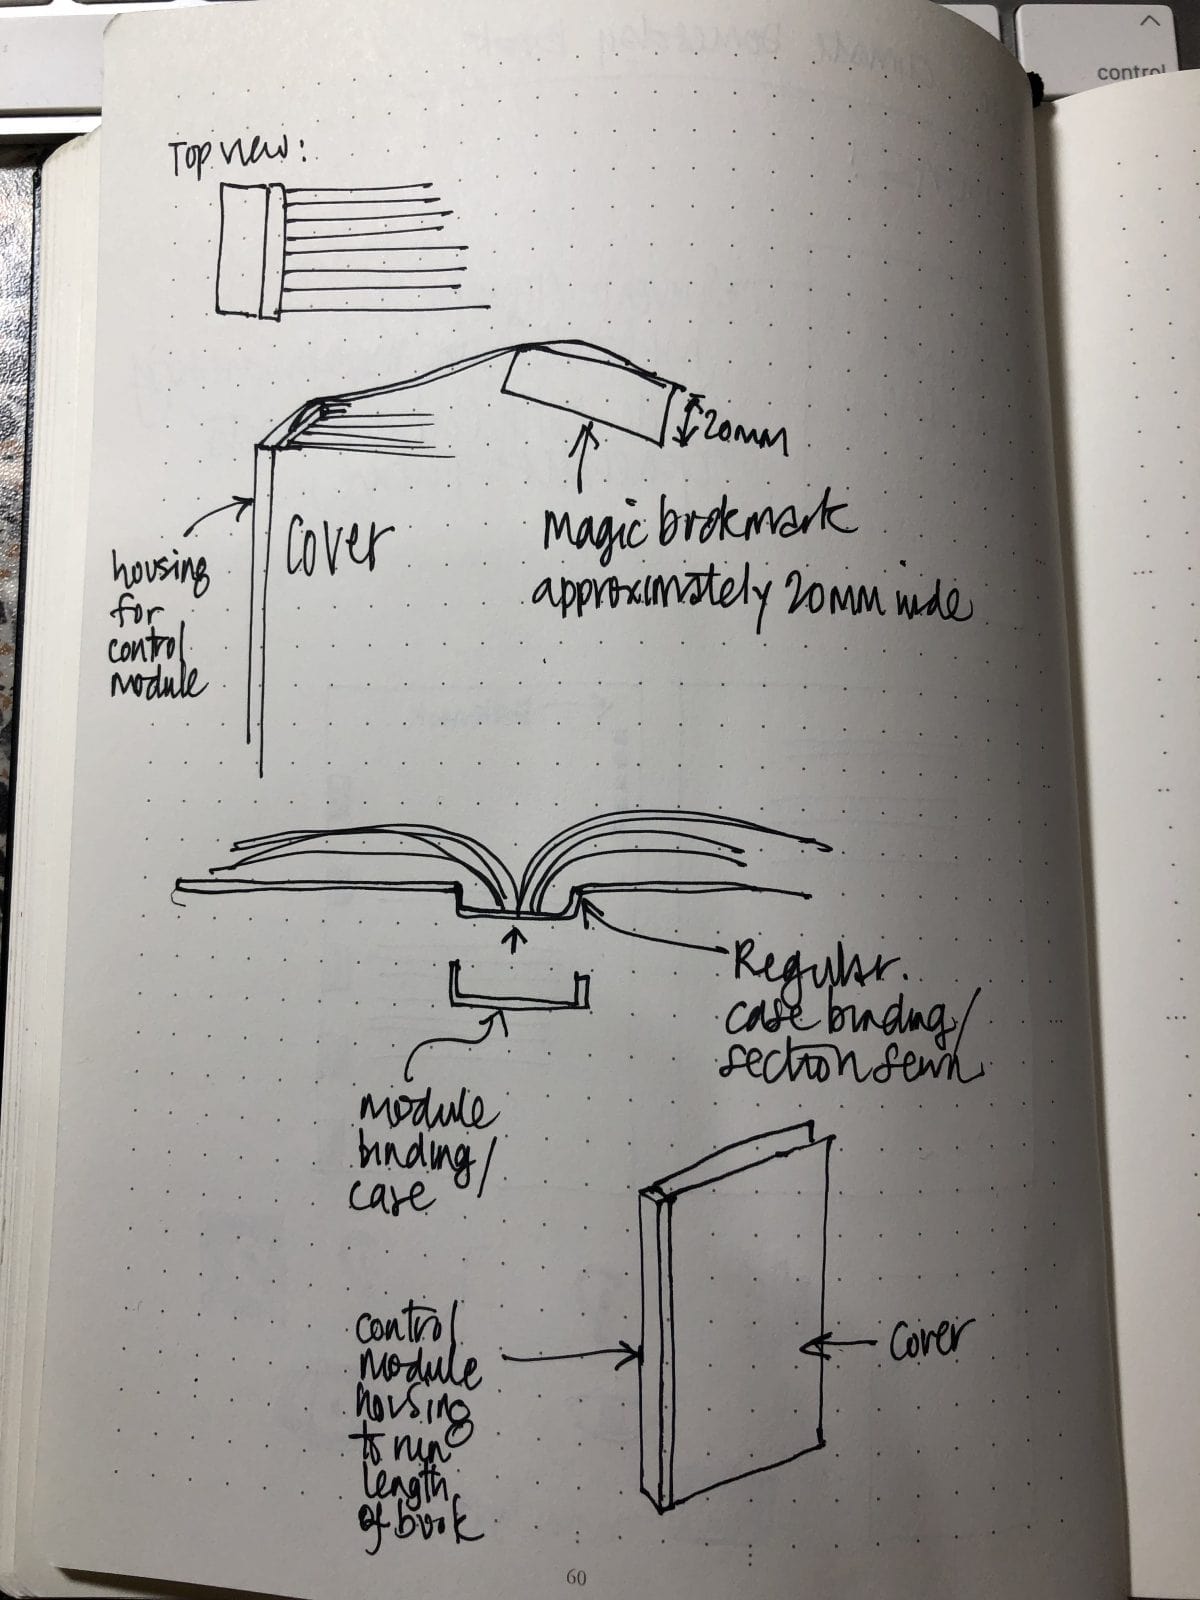 control
Top view:
20mm
Cover
magic bookmark
approximately 20mm wide
housing
for
control
module
Regular.
case binding/
section sewn
module
binding/
case
control
module
housing
to run
length
of book
cover
60